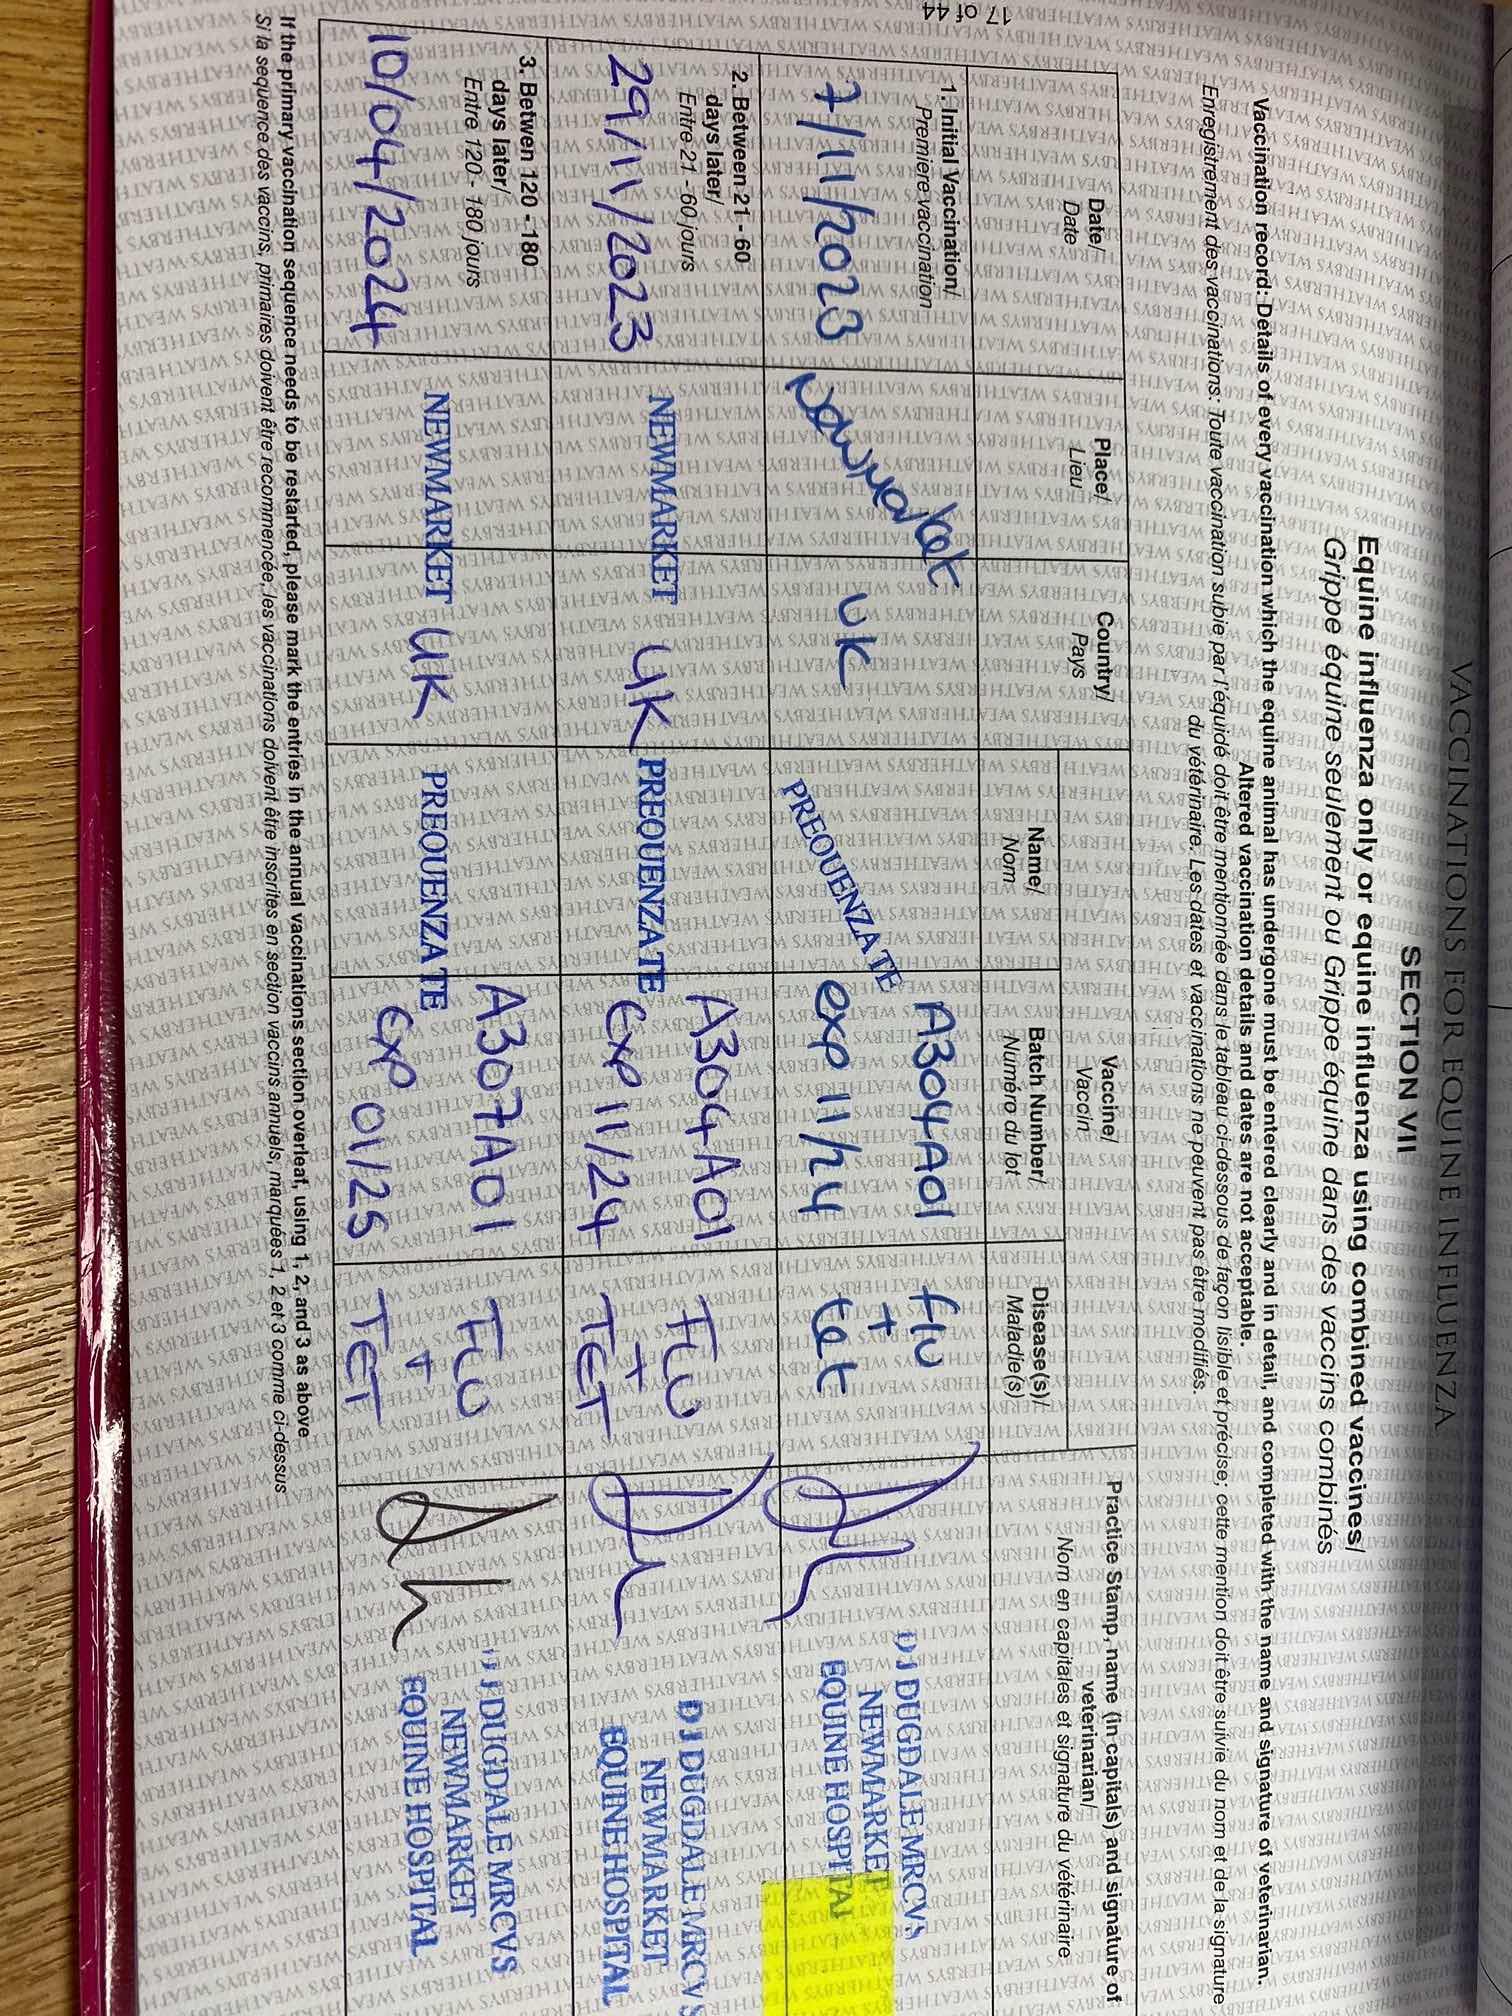 VACCINATIONS FOR EQUINE INFLUENZA
SECTION VII
Equine influenza only or equine influenza using combined vaccines/
Grippe équine seulement ou Grippe équine dans des vaccins combinés
Vaccination record: Details of every vaccination which the equine animal has undergone must be entered clearly and in detail, and completed with the name and signature of veterinarian.
Altered vaccination details and dates are not acceptable.
Enregistrement des vaccinations: Toute vaccination subie par l'équidé doit être mentionnée dans le tableau ci-dessous de façon lisible et précise; cette mention doit être suivie du nom et de la signature
du vétérinaire. Les dates et vaccinations ne peuvent pas être modifiés.
Date/
Date
Place/
Lieu
Country/
Pays
Vaccine/
Vaccin
Name/
Nom
Batch Number/
Numéro du lot
Disease(s)/
Maladie(s)
Practice Stamp, name (in capitals) and signature of
veterinarian/
Nom en capitales et signature du vétérinaire
1. Initial Vaccination/
Premiere vaccination
7/11/2023
Newmarket
UK
PREQUENZA TE
A304A01
exp 11/24
flu
+
tet
DJ DUGDALE MRCVS
NEWMARKET
EQUINE HOSPITAL
2. Between 21 - 60
days later/
Entre 21 - 60 jours
29/11/2023
NEWMARKET
UK
PREQUENZA TE
A304A01
exp 11/24
FLU
+
TET
DJ DUGDALE MRCVS
NEWMARKET
EQUINE HOSPITAL
3. Betwen 120 - 180
days later/
Entre 120 - 180 jours
10/04/2024
NEWMARKET
UK
PREQUENZA TE
A307A01
exp 01/25
FLU
+
TET
DJ DUGDALE MRCVS
NEWMARKET
EQUINE HOSPITAL
If the primary vaccination sequence needs to be restarted, please mark the entries in the annual vaccinations section overleaf, using 1, 2, and 3 as above
Si la sequence des vaccins, primaires doivent être recommencée, les vaccinations doivent être inscrites en section vaccins annuels, marquées 1, 2 et 3 comme ci-dessus
17 of 44
WEATHERBYS